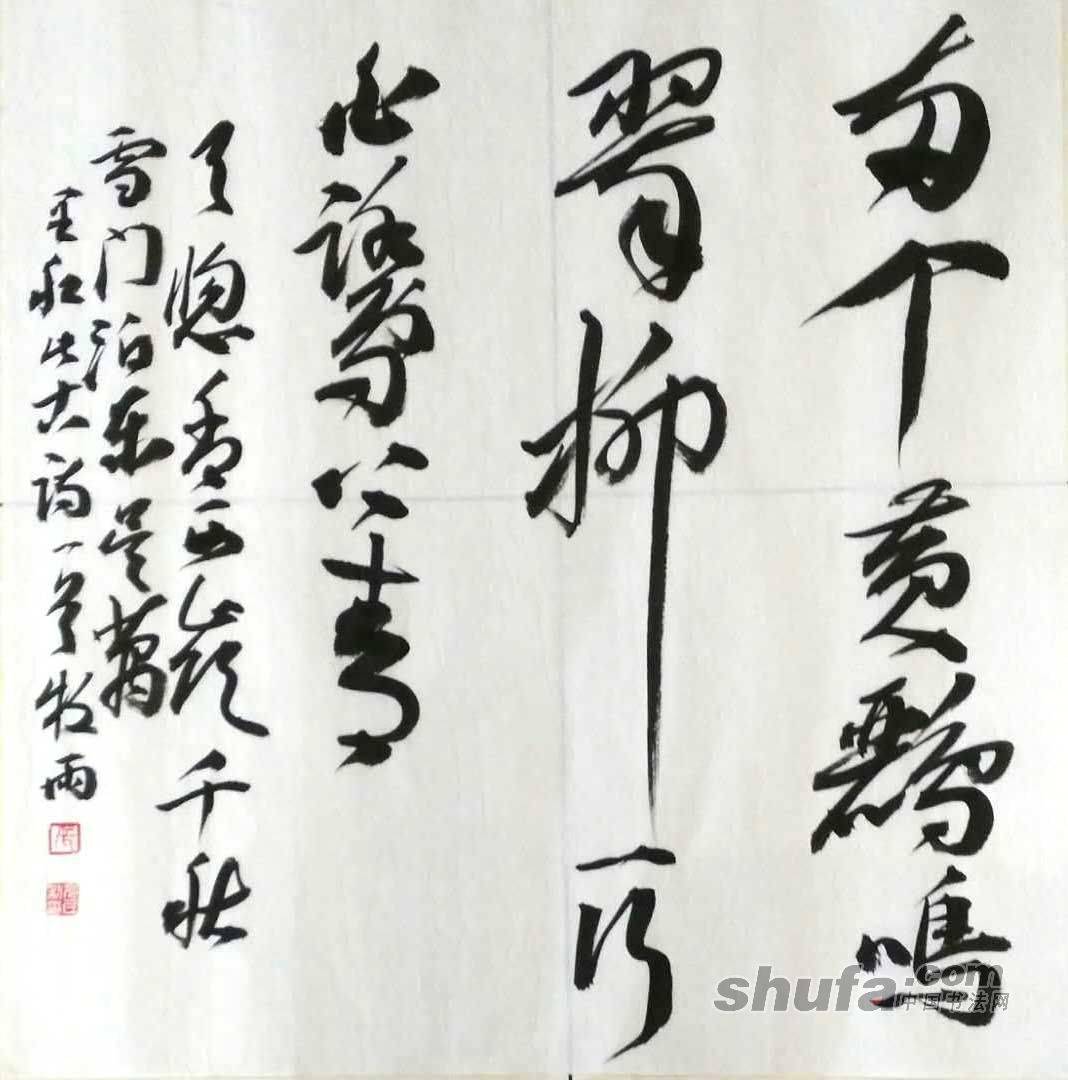 两个黄鸝鳴
翠柳一行
白鷺上青
天窗含西嶺千秋
雪门泊东吴萬
里船古诗一首牧雨
shufa.com
中国书法网